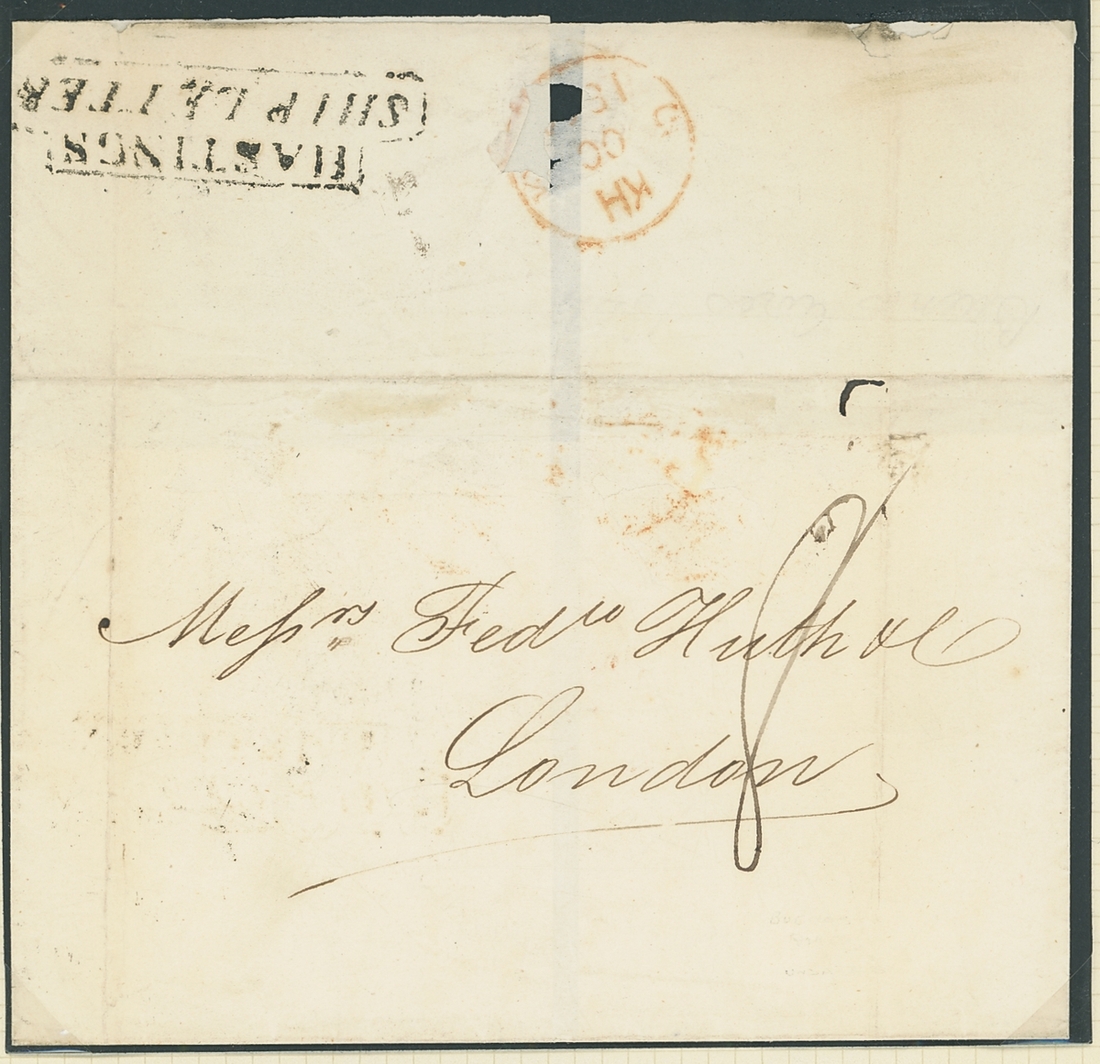 HASTINGS
SHIP LETTER
KH
OC
Messrs Fedco Huth & C
London
8